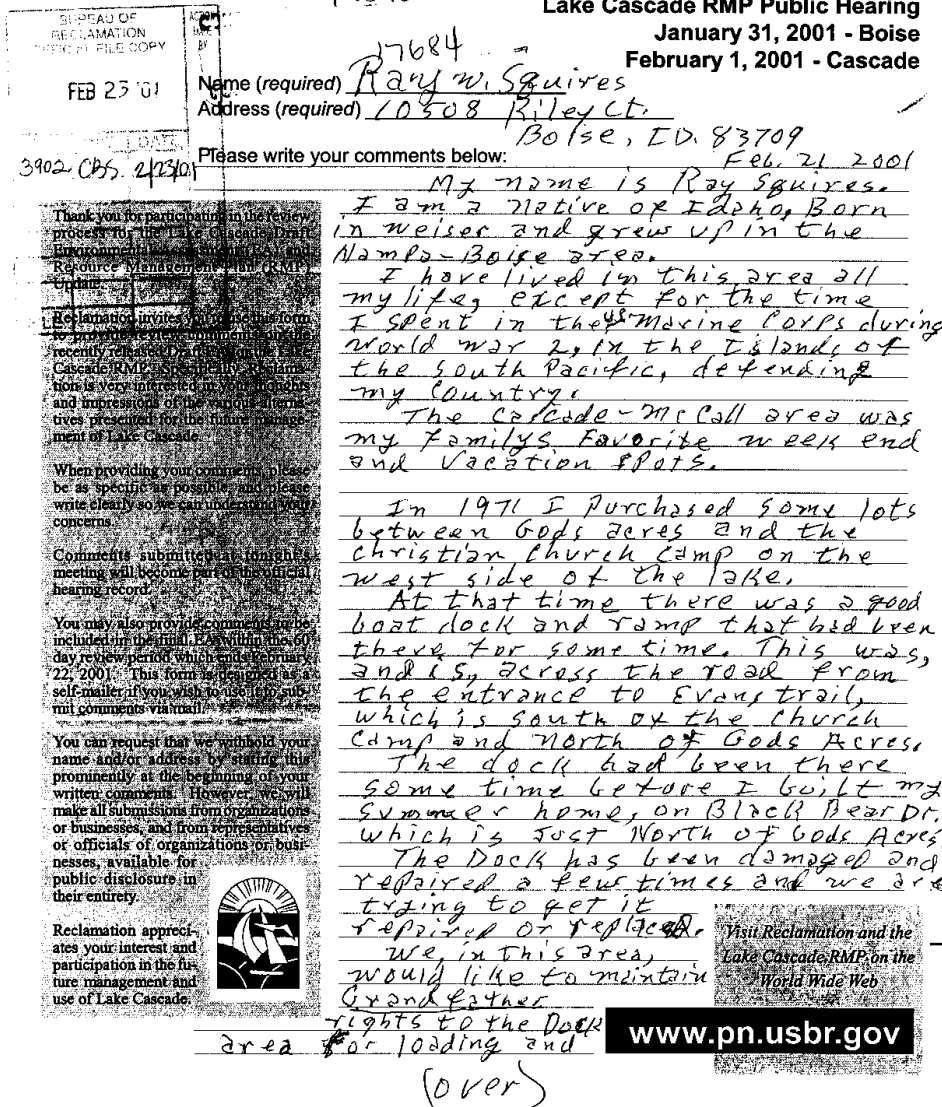 Lake Cascade RMP Public Hearing
January 31, 2001 - Boise
February 1, 2001 - Cascade
BUREAU OF
RECLAMATION
OFFICIAL FILE COPY
FEB 23 '01
DATE
3902 CBS. 2/23/01
27684
Name (required) Ray W. Squires
Address (required) 10508 Riley Ct.
Boise, ID. 83709
Please write your comments below:
Feb. 21 2001
My name is Ray Squires.
I am a native of Idaho, Born
in Weiser and grew up in the
Nampa-Boise area.
I have lived in this area all
my life, except for the time
I spent in the US Marine Corps during
World War 2, in the Islands of
the South Pacific, defending
my Country.
The Cascade-McCall area was
my familys Favorite week end
and Vacation spots.
In 1971 I Purchased some lots
between Gods acres and the
Christian Church Camp on the
west side of the lake.
At that time there was a good
boat dock and ramp that had been
there for some time. This was,
and is, across the road from
the entrance to Evans trail,
which is south of the Church
Camp and North of Gods Acres.
The dock had been there
some time before I built my
summer home, on Black Bear Dr.
which is Just North of Gods Acres
The Dock has been damaged and
repaired a few times and we are
trying to get it
repaired or replaced.
We, in this area,
would like to maintain
Grandfather
rights to the Dock
area for loading and
(over)
Thank you for participating in the review
process for the Lake Cascade Draft
Environmental Assessment (EA) and
Resource Management Plan (RMP)
Update.
Reclamation invites you to use this form
to provide review comments on the
recently released Draft EA on the Lake
Cascade RMP. Specifically, Reclama-
tion is very interested in your thoughts
and impressions of the various alterna-
tives presented for the future manage-
ment of Lake Cascade.
When providing your comments, please
be as specific as possible, and please
write clearly so we can understand your
concerns.
Comments submitted at tonight's
meeting will become part of the official
hearing record.
You may also provide comments to be
included in the final EA within the 60
day review period which ends February
22, 2001. This form is designed as a
self-mailer if you wish to use it to sub-
mit comments via mail.
You can request that we withhold your
name and/or address by stating this
prominently at the beginning of your
written comments. However, we will
make all submissions from organizations
or businesses, and from representatives
or officials of organizations or busi-
nesses, available for
public disclosure in
their entirety.
Reclamation appreci-
ates your interest and
participation in the fu-
ture management and
use of Lake Cascade.
Visit Reclamation and the
Lake Cascade RMP on the
World Wide Web
www.pn.usbr.gov